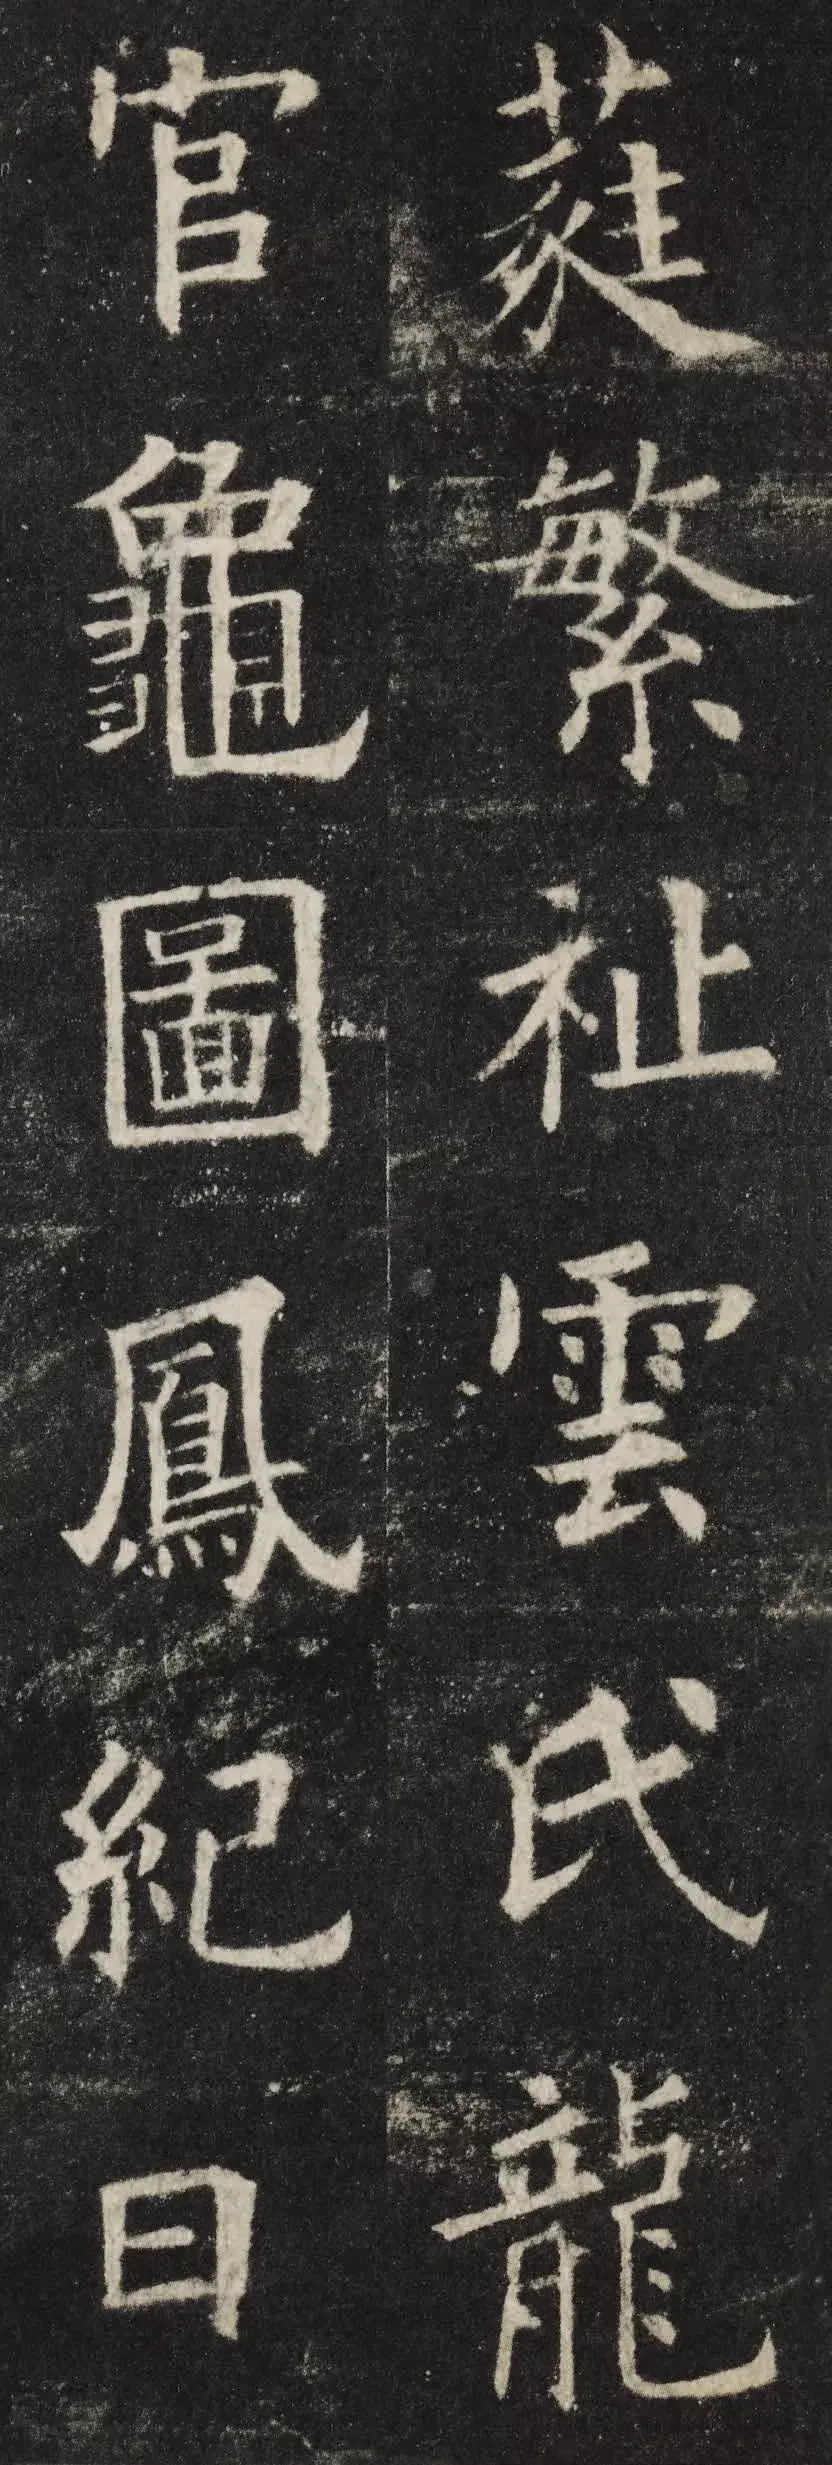 蕤繁祉雲氏龍
官龜圖鳳紀日